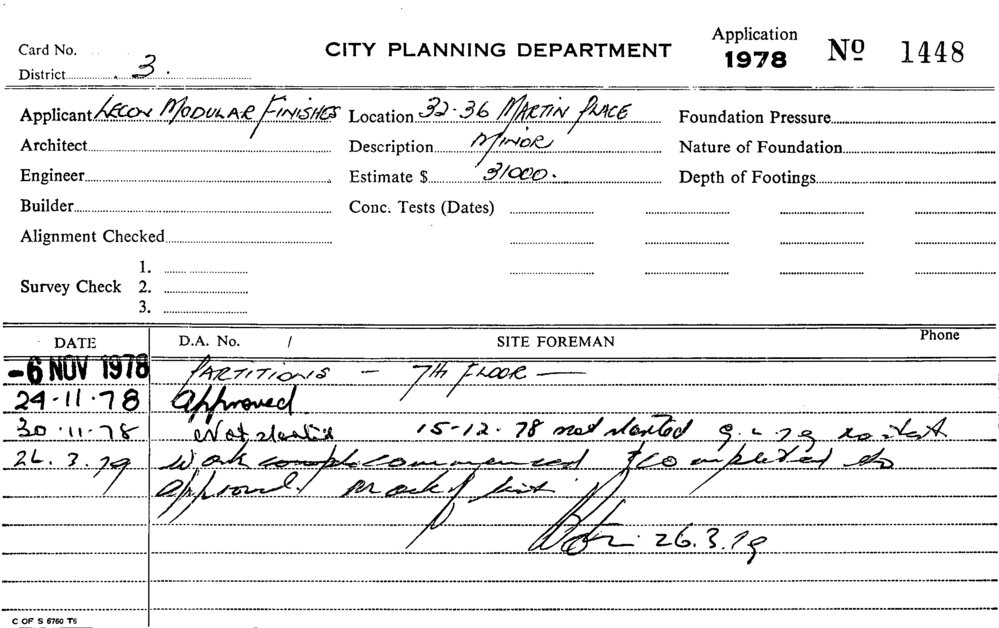 Card No.
CITY PLANNING DEPARTMENT
Application 1978 No 1448
District 3.
Applicant Lecon Modular Finishes Location 32-36 Martin Place Foundation Pressure
Architect Description Minor Nature of Foundation
Engineer Estimate $ 31000. Depth of Footings
Builder Conc. Tests (Dates)
Alignment Checked
1.
Survey Check 2.
3.
DATE D.A. No. / SITE FOREMAN Phone
-6 NOV 1978 Partitions - 7th Floor -
24.11.78 Approved
30.11.78 Not started 15-12.78 not started 9.2.79 no start
26.3.79 Work commenced & completed to
approval. Mark of list
26.3.79
C OF S 6760 T6